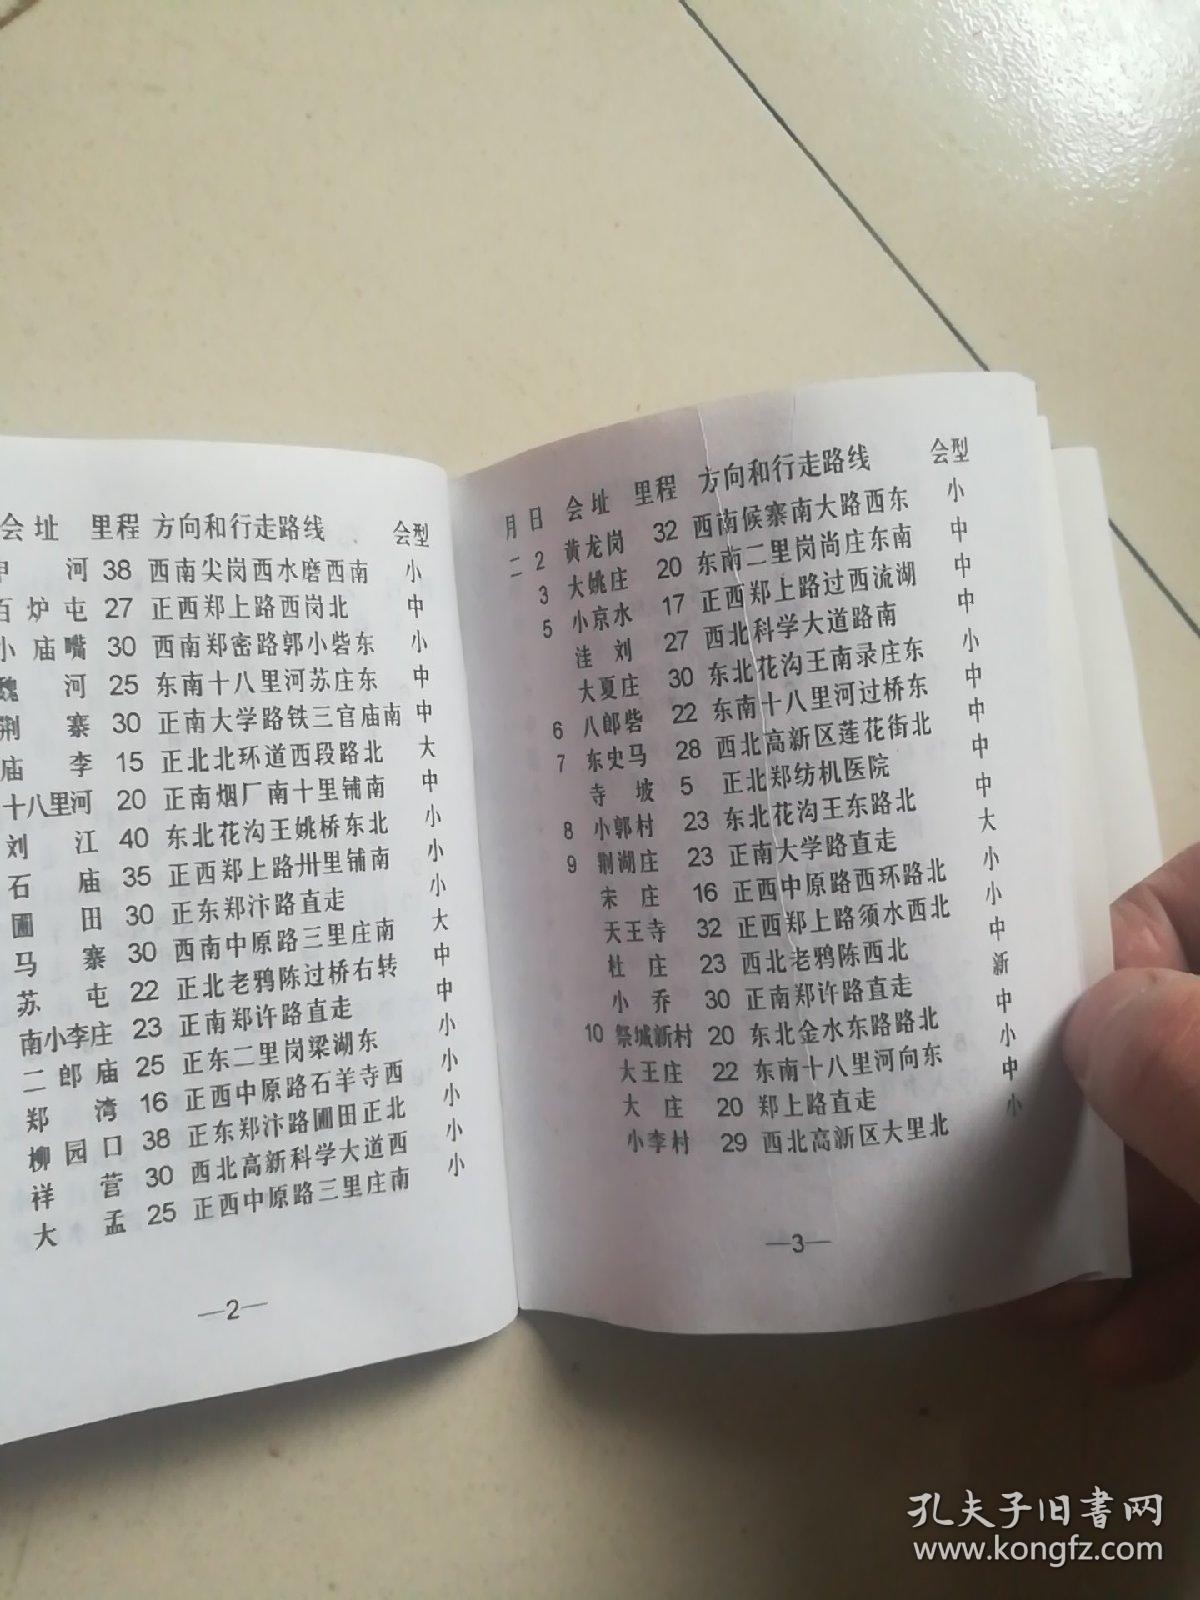 会址 里程 方向和行走路线 会型
河 38 西南尖岗西水磨西南 小
百炉屯 27 正西郑上路西岗北 中
小庙嘴 30 西南郑密路郭小砦东 小
魏河 25 东南十八里河苏庄东 中
荆寨 30 正南大学路铁三官庙南 中
庙李 15 正北北环道西段路北 大
十八里河 20 正南烟厂南十里铺南 中
刘江 40 东北花沟王姚桥东北 小
石庙 35 正西郑上路卅里铺南 小
圃田 30 正东郑汴路直走 小
马寨 30 西南中原路三里庄南 大
苏屯 22 正北老鸦陈过桥右转 中
南小李庄 23 正南郑许路直走 中
二郎庙 25 正东二里岗梁湖东 小
郑湾 16 正西中原路石羊寺西 小
柳园口 38 正东郑汴路圃田正北 小
祥营 30 西北高新科学大道西 小
大孟 25 正西中原路三里庄南 小
—2—
月日 会址 里程 方向和行走路线 会型
二 2 黄龙岗 32 西南候寨南大路西东 小
3 大姚庄 20 东南二里岗尚庄东南 中
5 小京水 17 正西郑上路过西流湖 中
洼刘 27 西北科学大道路南 中
大夏庄 30 东北花沟王南录庄东 小
6 八郎砦 22 东南十八里河过桥东 中
7 东史马 28 西北高新区莲花街北 中
寺坡 5 正北郑纺机医院 中
8 小郭村 23 东北花沟王东路北 中
9 荆湖庄 23 正南大学路直走 大
宋庄 16 正西中原路西环路北 小
天王寺 32 正西郑上路须水西北 小
杜庄 23 西北老鸦陈西北 中
小乔 30 正南郑许路直走 新
10 祭城新村 20 东北金水东路路北 中
大王庄 22 东南十八里河向东 小
大庄 20 郑上路直走 中
小李村 29 西北高新区大里北 小
—3—
孔夫子旧书网
www.kongfz.com